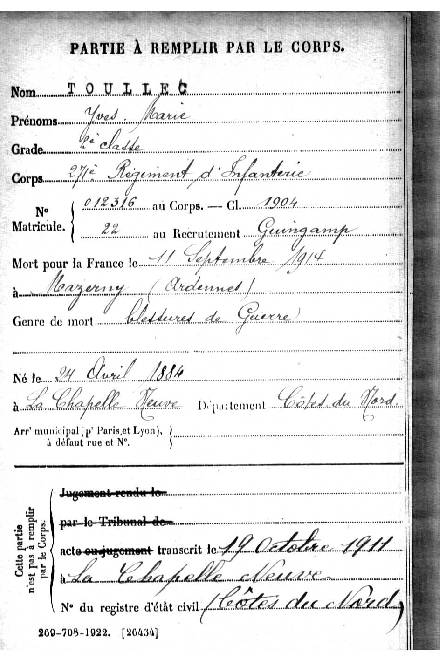 PARTIE À REMPLIR PAR LE CORPS.
Nom TOULLEC
Prénoms Yves Marie
Grade 2è classe
Corps 271è Régiment d'Infanterie
N° Matricule. { 012316 au Corps. — Cl. 1904
22 au Recrutement Guingamp
Mort pour la France le 11 Septembre 1914
à Mazerny (Ardennes)
Genre de mort blessures de Guerre
Né le 24 Avril 1884
à La Chapelle Neuve Département Côtes du Nord.
Arr' municipal (p' Paris et Lyon),
à défaut rue et N°.
Cette partie n'est pas à remplir par le Corps.
Jugement rendu le
par le Tribunal de
acte ou jugement transcrit le 19 Octobre 1911
à La Chapelle Neuve
N° du registre d'état civil (Côtes du Nord)
269-708-1922. [26434]